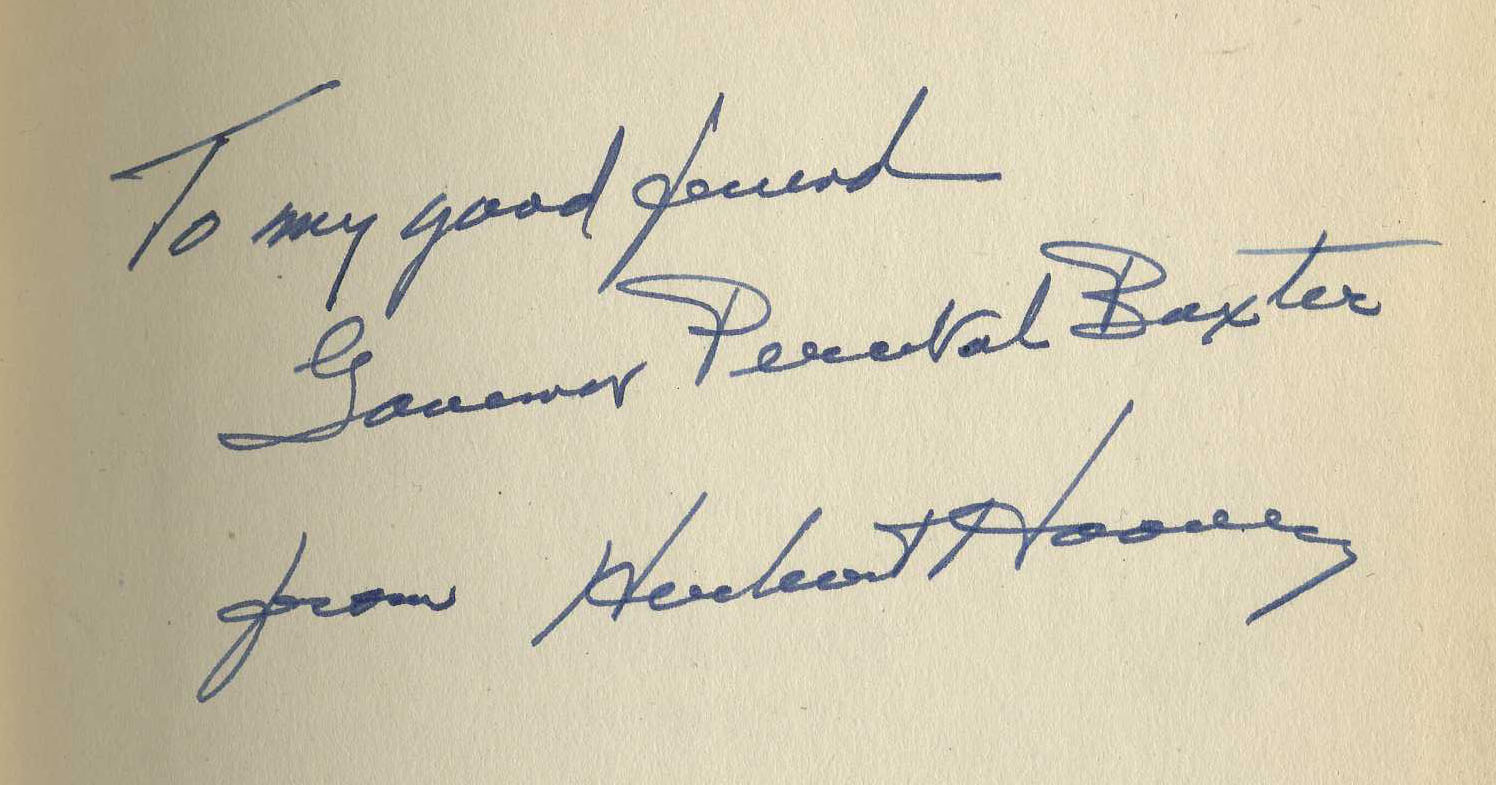 To my good friend
Governor Percival Baxter
from Herbert Hoover